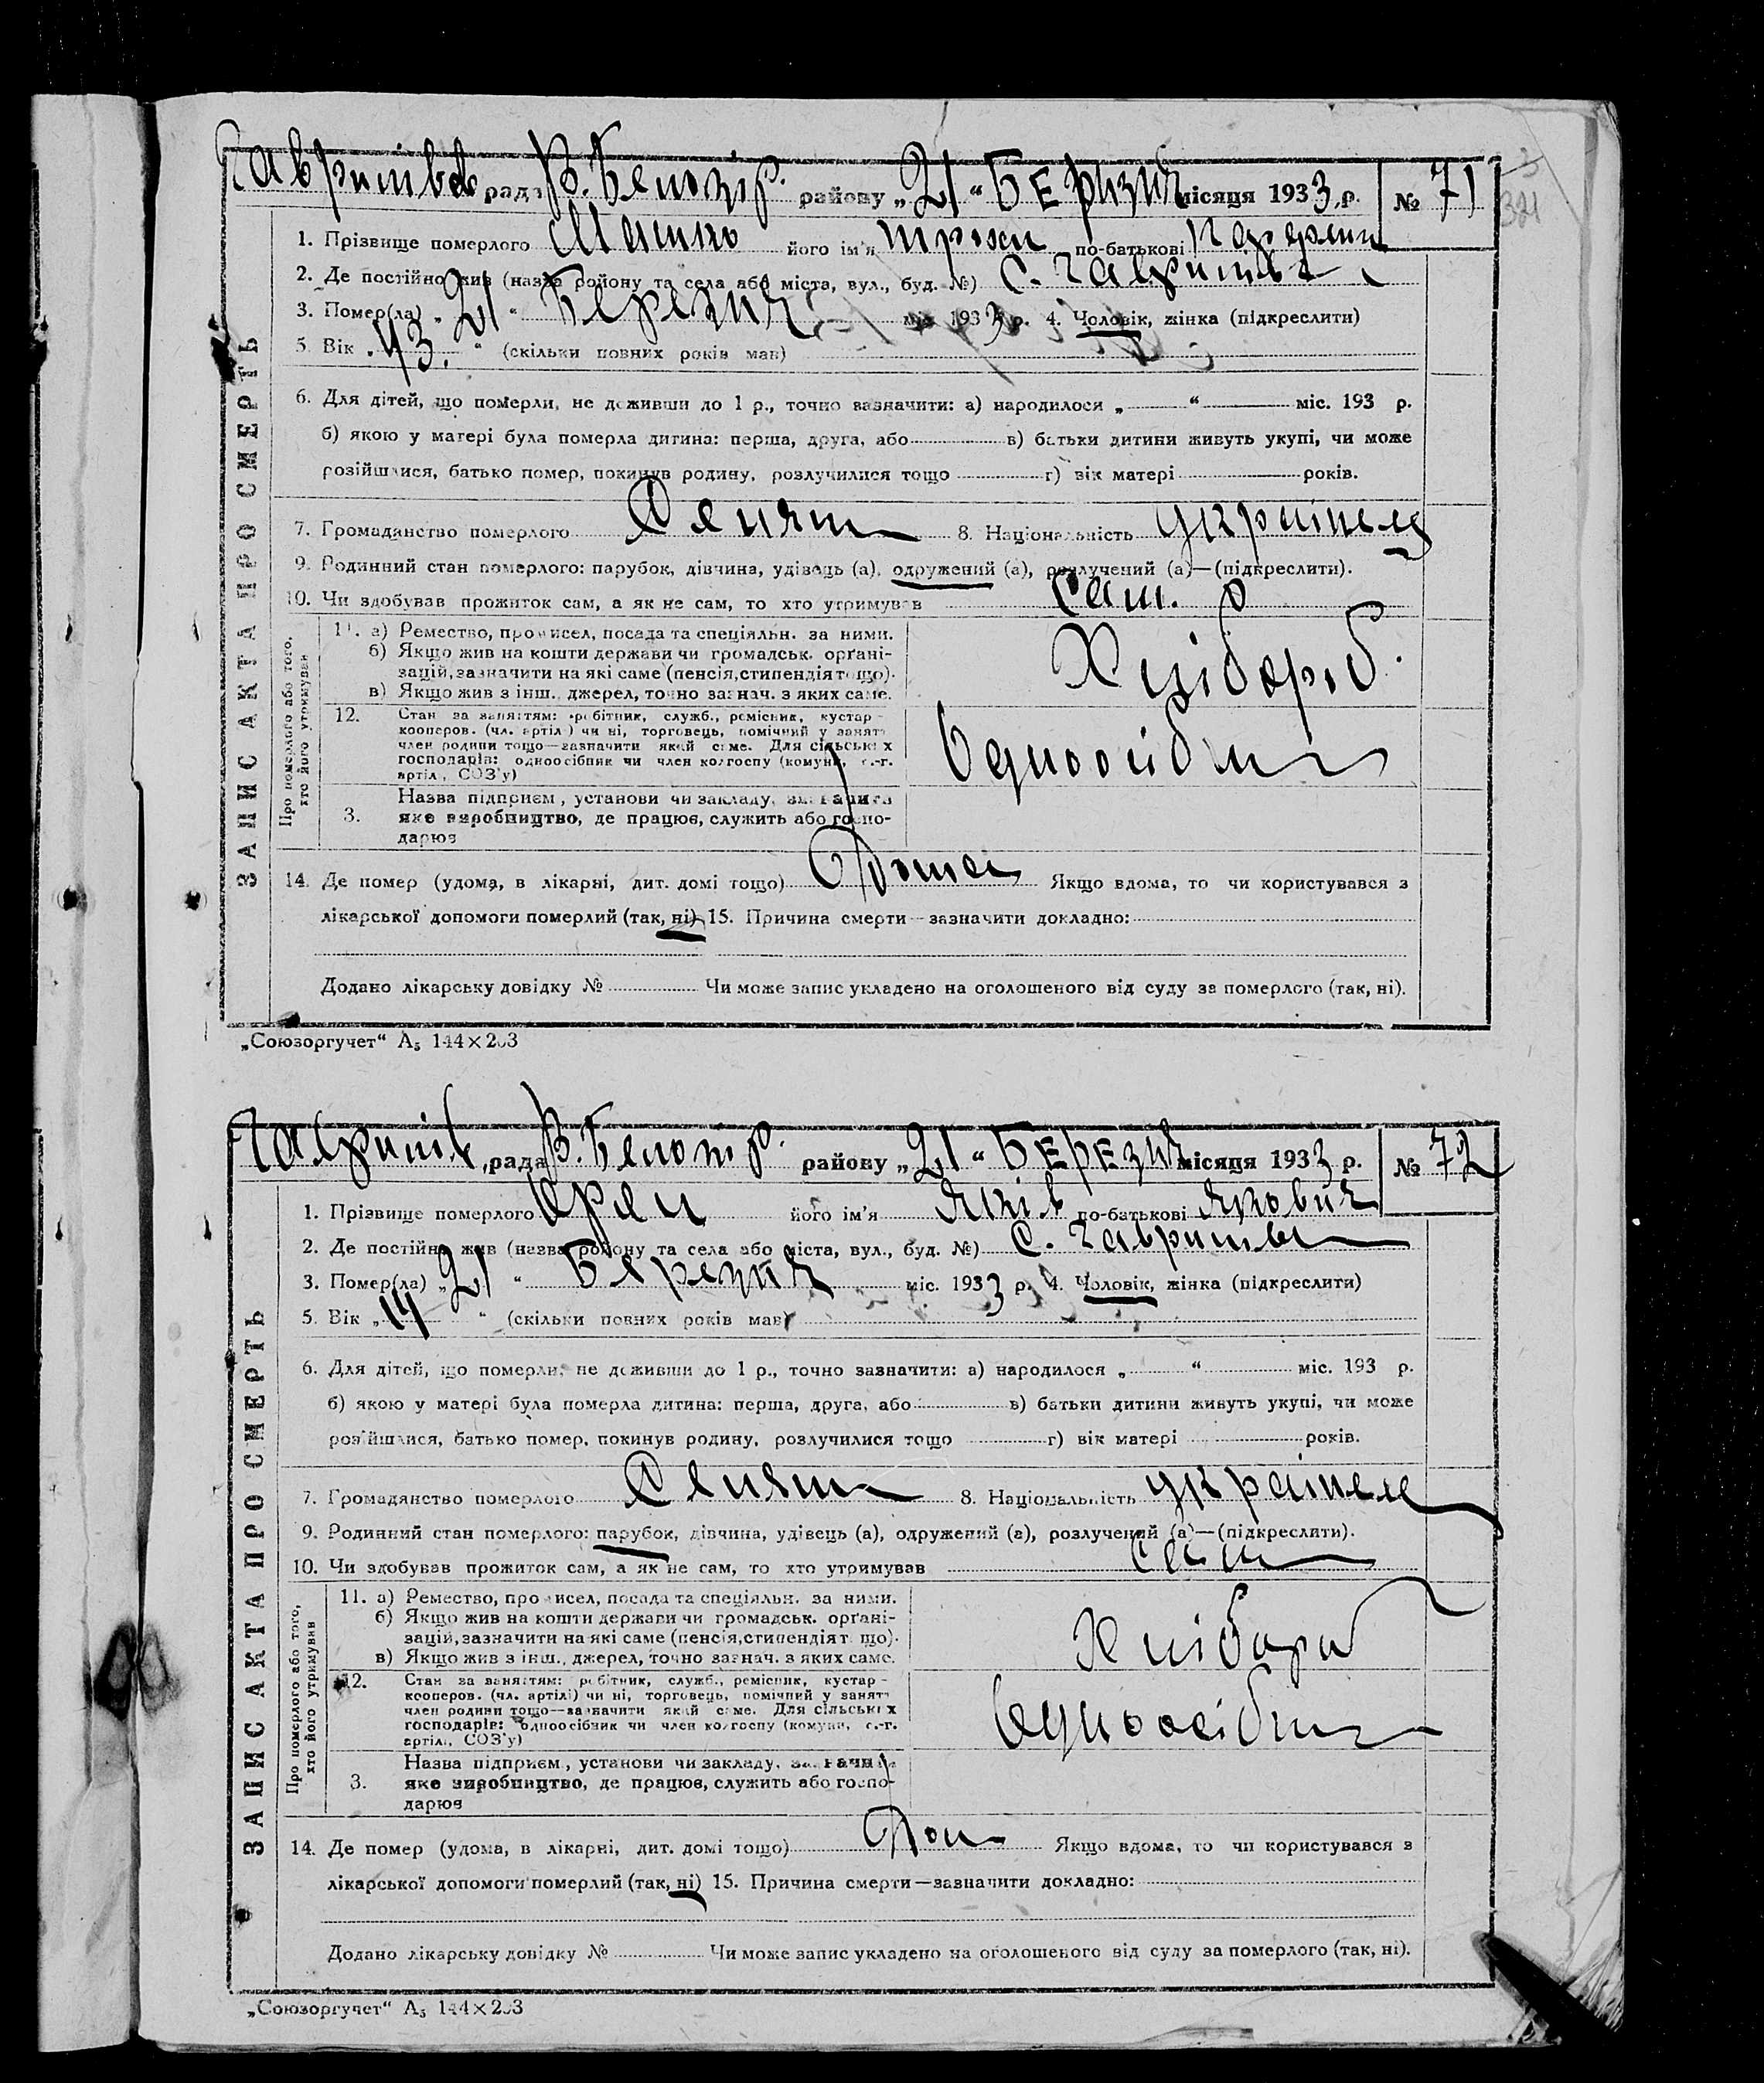 рада В. Белозір. району „21“ БЕРЕЗНЯ місяця 1933 р. № 71
321
1. Прізвище померлого його ім'я по-батькові
2. Де постійно жив (назва району та села або міста, вул., буд. №) с. Гаврилівка
3. Помер(ла) „21“ Березня міс. 1933 р. 4. Чоловік, жінка (підкреслити)
5. Вік „43.“ (скільки повних років мав)
6. Для дітей, що померли, не доживши до 1 р., точно зазначити: а) народилося „ “ міс. 193 р.
б) якою у матері була померла дитина: перша, друга, або в) батьки дитини живуть укупі, чи може
розійшлися, батько помер, покинув родину, розлучилися тощо г) вік матері років.
7. Громадянство померлого Селянин 8. Національність українець
9. Родинний стан померлого: парубок, дівчина, удівець (а), одружений (а), розлучений (а)—(підкреслити).
10. Чи здобував прожиток сам, а як не сам, то хто утримував Сам.
ЗАПИС АКТА ПРО СМЕРТЬ
Про померлого або того,
хто його утримував
11. а) Ремество, промисел, посада та спеціяльн. за ними.
б) Якщо жив на кошти держави чи громадськ. орґані-
зацій, зазначити на які саме (пенсія, стипендія тощо).
в) Якщо жив з інш. джерел, точно зазнач. з яких саме.
Хлібороб.
12. Стан за заняттям: робітник, служб., ремісник, кустар-
кооперов. (чл. артілі) чи ні, торговець, помічний у занятт
член родини тощо—зазначити який саме. Для сільських
господарів: одноосібник чи член колгоспу (комуни, с.-г.
артілі, СОЗ'у)
Одноосібник
3. Назва підприєм., установи чи закладу, зазначити
яке виробництво, де працює, служить або госпо-
дарює
14. Де помер (удома, в лікарні, дит. домі тощо) Дома Якщо вдома, то чи користувався з
лікарської допомоги померлий (так, ні) 15. Причина смерти—зазначити докладно:
Додано лікарську довідку № Чи може запис укладено на оголошеного від суду за померлого (так, ні).
„Союзоргучет“ А5 144×203
Гаврилів. рада В. Белозір. району „21“ БЕРЕЗНЯ місяця 1933 р. № 72
1. Прізвище померлого його ім'я Яків по-батькові Якович
2. Де постійно жив (назва району та села або міста, вул., буд. №) С. Гаврилівка
3. Помер(ла) „21“ Березня міс. 1933 р. 4. Чоловік, жінка (підкреслити)
5. Вік „14“ (скільки повних років мав)
6. Для дітей, що померли, не доживши до 1 р., точно зазначити: а) народилося „ “ міс. 193 р.
б) якою у матері була померла дитина: перша, друга, або в) батьки дитини живуть укупі, чи може
розійшлися, батько помер, покинув родину, розлучилися тощо г) вік матері років.
7. Громадянство померлого Селянин 8. Національність українець
9. Родинний стан померлого: парубок, дівчина, удівець (а), одружений (а), розлучений (а)—(підкреслити).
10. Чи здобував прожиток сам, а як не сам, то хто утримував Сам
ЗАПИС АКТА ПРО СМЕРТЬ
Про померлого або того,
хто його утримував
11. а) Ремество, промисел, посада та спеціяльн. за ними.
б) Якщо жив на кошти держави чи громадськ. орґані-
зацій, зазначити на які саме (пенсія, стипендія тощо).
в) Якщо жив з інш. джерел, точно зазнач. з яких саме.
Хлібороб
12. Стан за заняттям: робітник, служб., ремісник, кустар-
кооперов. (чл. артілі) чи ні, торговець, помічний у занятт
член родини тощо—зазначити який саме. Для сільських
господарів: одноосібник чи член колгоспу (комуни, с.-г.
артілі, СОЗ'у)
Одноосібник
3. Назва підприєм., установи чи закладу, зазначити
яке виробництво, де працює, служить або госпо-
дарює
14. Де помер (удома, в лікарні, дит. домі тощо) Дом Якщо вдома, то чи користувався з
лікарської допомоги померлий (так, ні) 15. Причина смерти—зазначити докладно:
Додано лікарську довідку № Чи може запис укладено на оголошеного від суду за померлого (так, ні).
„Союзоргучет“ А5 144×203